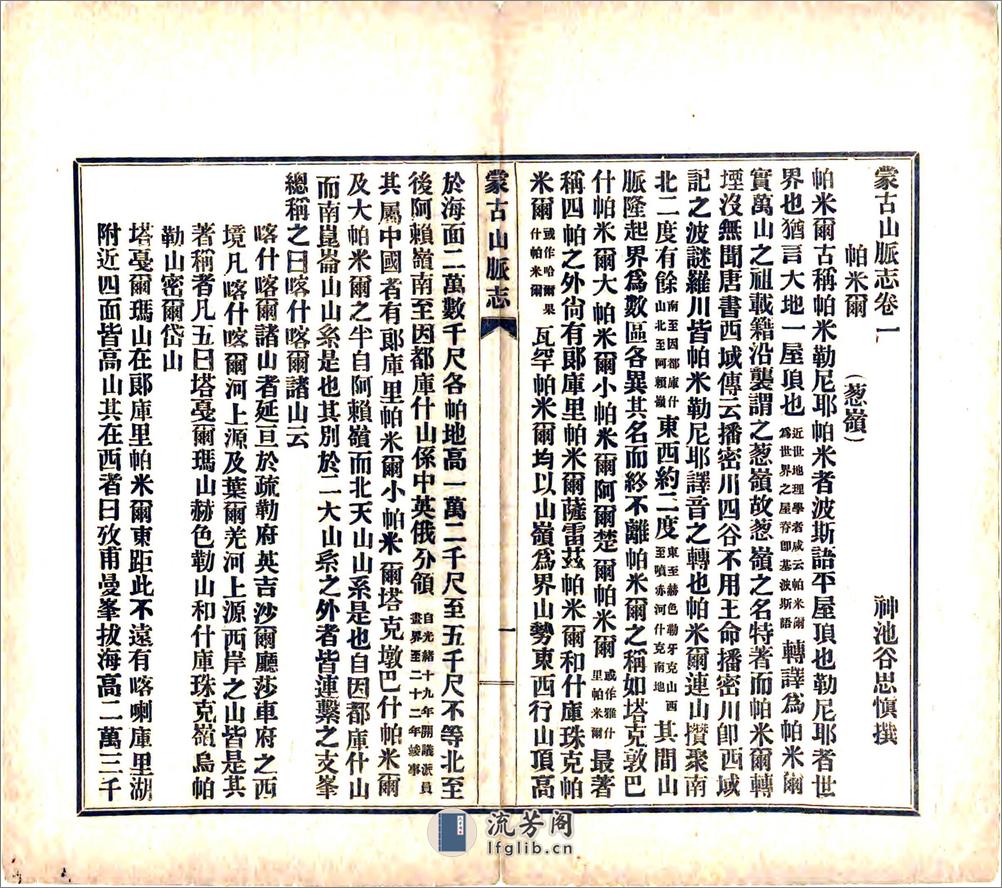 蒙古山脈志卷一
神池谷思愼撰
帕米爾（葱嶺）
帕米爾古稱帕米勒尼耶帕米者波斯語平屋頂也勒尼耶者世
界也猶言大地一屋頂也近世地理學者咸云帕米爾爲世界之屋脊卽基波斯語轉譯爲帕米爾
實萬山之祖載籍沿襲謂之葱嶺故葱嶺之名特著而帕米爾轉
堙沒無聞唐書西域傳云播密川四谷不用王命播密川卽西域
記之波謎羅川皆帕米勒尼耶譯音之轉也帕米爾連山攢聚南
北二度有餘南至因都庫什山北至阿賴嶺東西約二度東至赫色勒牙克山西至噴赤河什克南地其間山
脈隆起界爲數區各異其名而終不離帕米爾之稱如塔克敦巴
什帕米爾大帕米爾小帕米爾阿爾楚爾帕米爾或作雅什里帕米爾最著
稱四帕之外尙有郞庫里帕米爾薩雷茲帕米爾和什庫珠克帕
米爾或作哈爾果什帕米爾瓦罕帕米爾均以山嶺爲界山勢東西行山頂高
蒙古山脈志
一
於海面二萬數千尺各帕地高一萬二千尺至五千尺不等北至
後阿賴嶺南至因都庫什山係中英俄分領自光緒十九年開議派員畫界至二十二年竣事
其屬中國者有郞庫里帕米爾小帕米爾塔克墩巴什帕米爾
及大帕米爾之半自阿賴嶺而北天山山系是也自因都庫什山
而南崑崙山山系是也其別於二大山系之外者皆連繫之支峯
總稱之曰喀什喀爾諸山云
喀什喀爾諸山者延亘於疏勒府英吉沙爾廳莎車府之西
境凡喀什喀爾河上源及葉爾羌河上源西岸之山皆是其
著者凡五曰塔戞爾瑪山赫色勒山和什庫珠克嶺烏帕
勒山密爾岱山
塔戞爾瑪山在郞庫里帕米爾東距此不遠有喀喇庫里湖
附近四面皆高山其在西者曰攷甫曼峯拔海高二萬三千
流芳阁
lfglib.cn